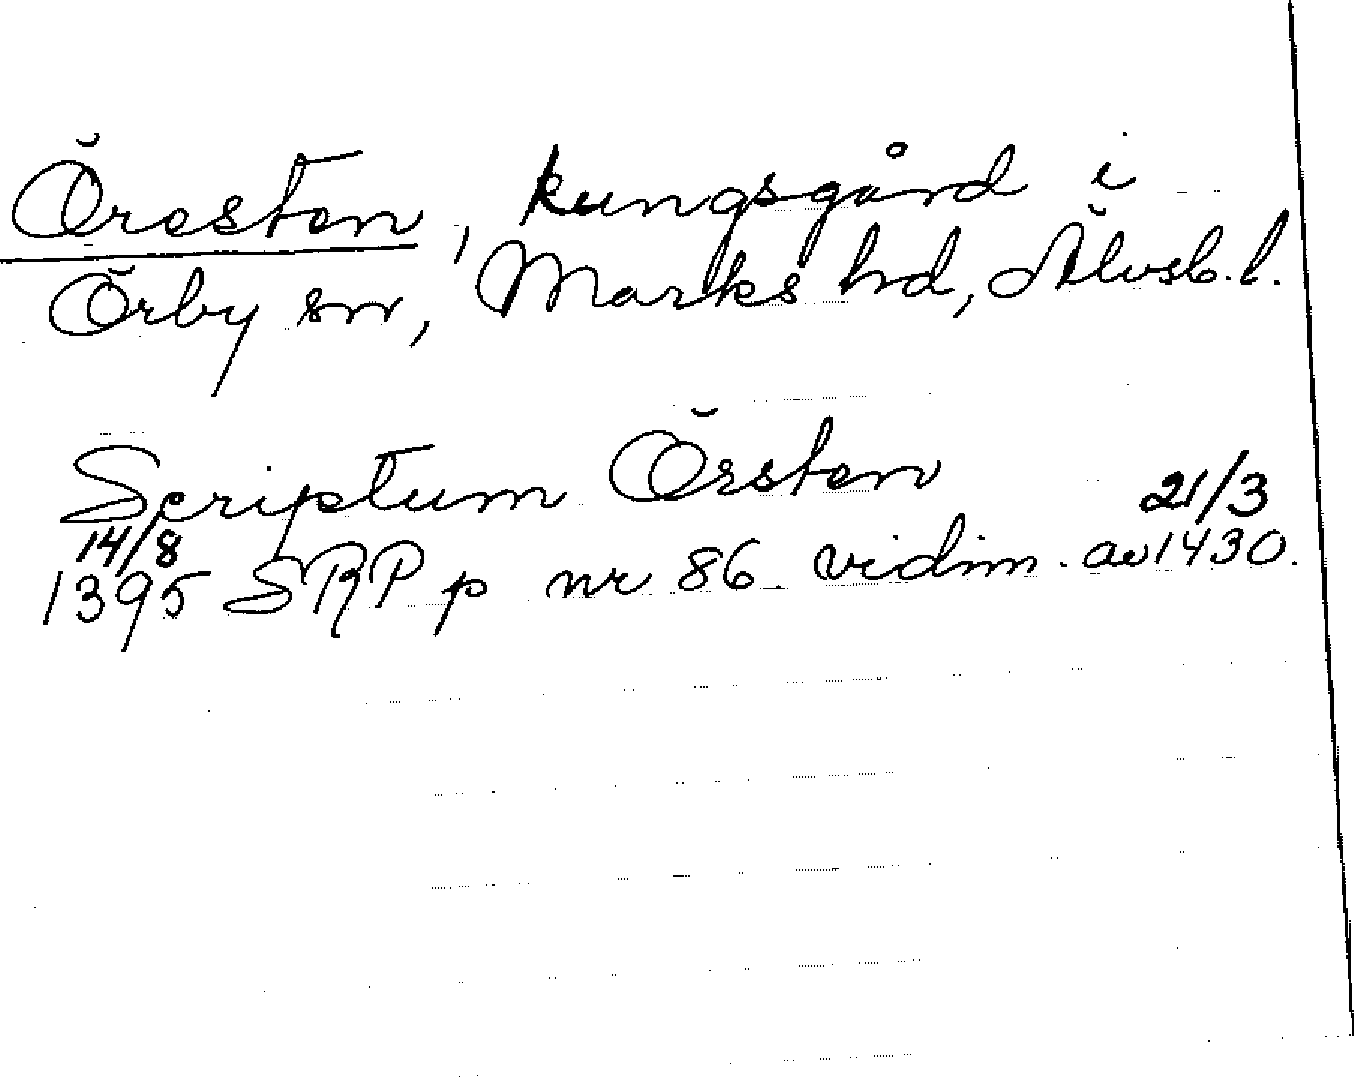 Öresten, kungsgård i
Örby sn, Marks hd, Älvsb. l.
Scriptum Örsten 21/3
14/8
1395 SRP p nr 86 vidim. av 1430.